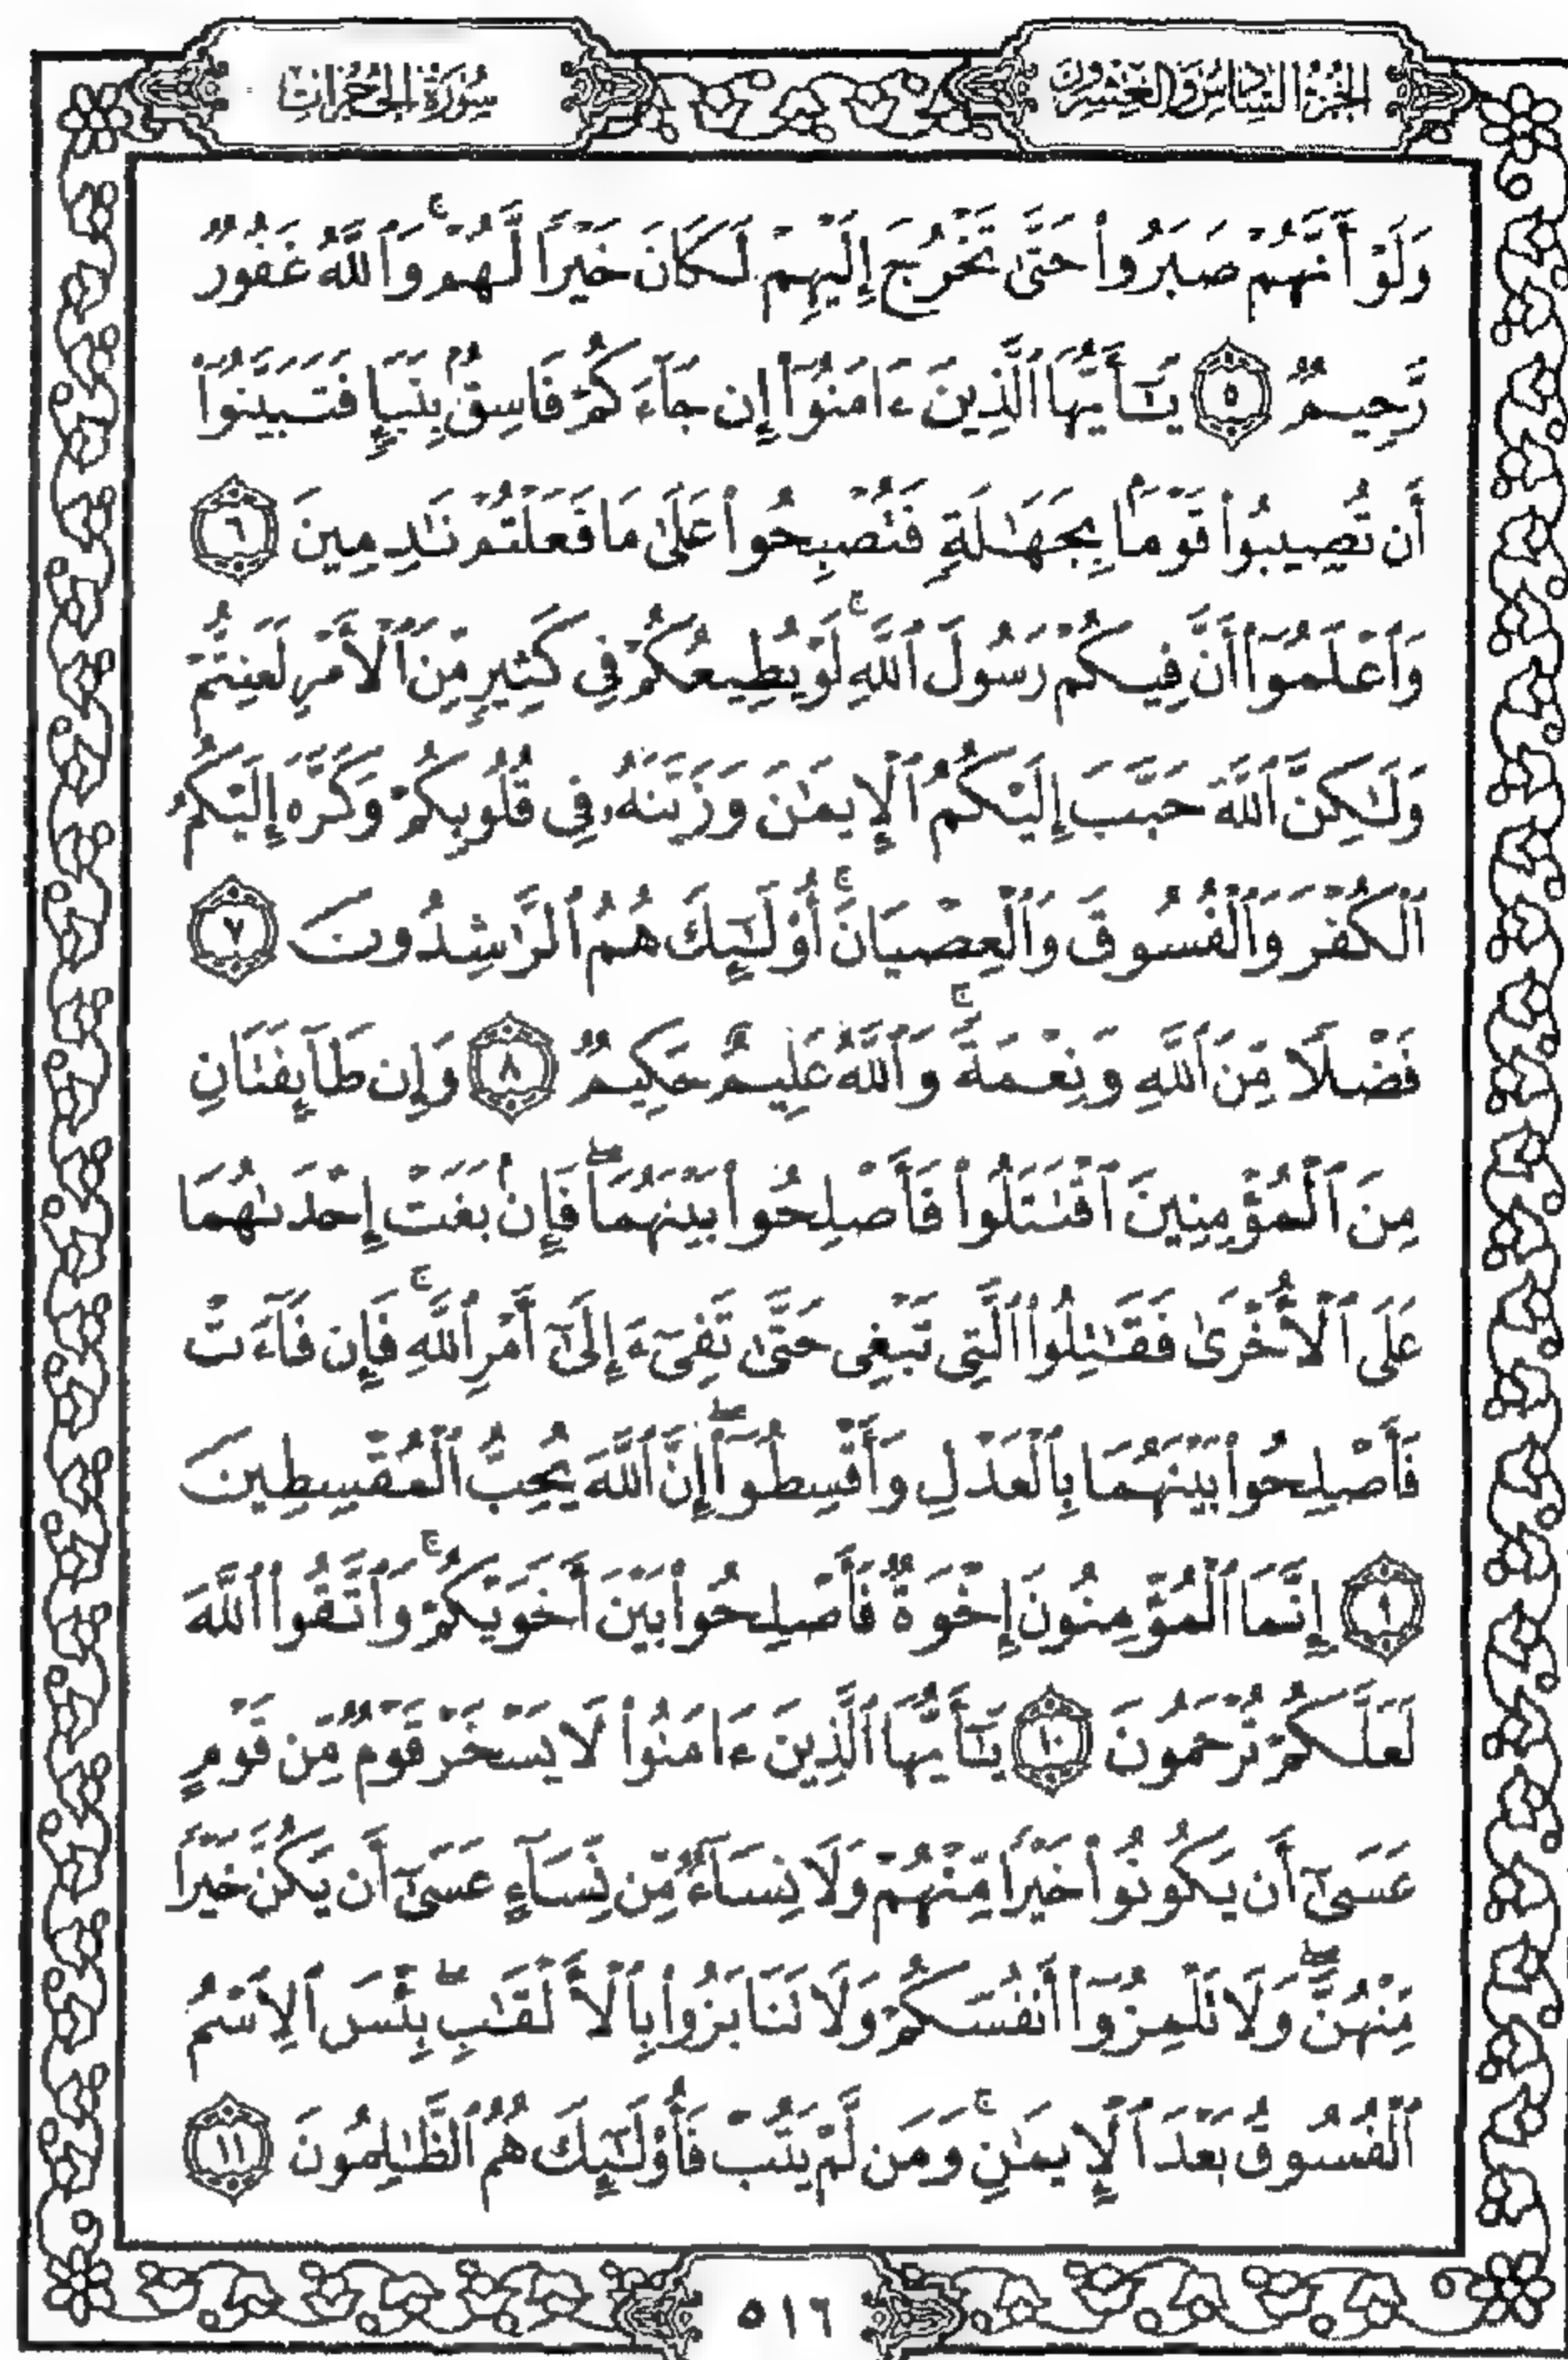 الجزء السادس والعشرون
سورة الحجرات
وَلَوۡ أَنَّهُمۡ صَبَرُواْ حَتَّىٰ تَخۡرُجَ إِلَيۡهِمۡ لَكَانَ خَيۡرٗا لَّهُمۡۚ وَٱللَّهُ غَفُورٞ
رَّحِيمٞ ٥ يَٰٓأَيُّهَا ٱلَّذِينَ ءَامَنُوٓاْ إِن جَآءَكُمۡ فَاسِقُۢ بِنَبَإٖ فَتَبَيَّنُوٓاْ
أَن تُصِيبُواْ قَوۡمَۢا بِجَهَٰلَةٖ فَتُصۡبِحُواْ عَلَىٰ مَا فَعَلۡتُمۡ نَٰدِمِينَ ٦
وَٱعۡلَمُوٓاْ أَنَّ فِيكُمۡ رَسُولَ ٱللَّهِۚ لَوۡ يُطِيعُكُمۡ فِي كَثِيرٖ مِّنَ ٱلۡأَمۡرِ لَعَنِتُّمۡ
وَلَٰكِنَّ ٱللَّهَ حَبَّبَ إِلَيۡكُمُ ٱلۡإِيمَٰنَ وَزَيَّنَهُۥ فِي قُلُوبِكُمۡ وَكَرَّهَ إِلَيۡكُمُ
ٱلۡكُفۡرَ وَٱلۡفُسُوقَ وَٱلۡعِصۡيَانَۚ أُوْلَٰٓئِكَ هُمُ ٱلرَّٰشِدُونَ ٧
فَضۡلٗا مِّنَ ٱللَّهِ وَنِعۡمَةٗۚ وَٱللَّهُ عَلِيمٌ حَكِيمٞ ٨ وَإِن طَآئِفَتَانِ
مِنَ ٱلۡمُؤۡمِنِينَ ٱقۡتَتَلُواْ فَأَصۡلِحُواْ بَيۡنَهُمَاۖ فَإِنۢ بَغَتۡ إِحۡدَىٰهُمَا
عَلَى ٱلۡأُخۡرَىٰ فَقَٰتِلُواْ ٱلَّتِي تَبۡغِي حَتَّىٰ تَفِيٓءَ إِلَىٰٓ أَمۡرِ ٱللَّهِۚ فَإِن فَآءَتۡ
فَأَصۡلِحُواْ بَيۡنَهُمَا بِٱلۡعَدۡلِ وَأَقۡسِطُوٓاْۖ إِنَّ ٱللَّهَ يُحِبُّ ٱلۡمُقۡسِطِينَ
٩ إِنَّمَا ٱلۡمُؤۡمِنُونَ إِخۡوَةٞ فَأَصۡلِحُواْ بَيۡنَ أَخَوَيۡكُمۡۚ وَٱتَّقُواْ ٱللَّهَ
لَعَلَّكُمۡ تُرۡحَمُونَ ١٠ يَٰٓأَيُّهَا ٱلَّذِينَ ءَامَنُواْ لَا يَسۡخَرۡ قَوۡمٞ مِّن قَوۡمٍ
عَسَىٰٓ أَن يَكُونُواْ خَيۡرٗا مِّنۡهُمۡ وَلَا نِسَآءٞ مِّن نِّسَآءٍ عَسَىٰٓ أَن يَكُنَّ خَيۡرٗا
مِّنۡهُنَّۖ وَلَا تَلۡمِزُوٓاْ أَنفُسَكُمۡ وَلَا تَنَابَزُواْ بِٱلۡأَلۡقَٰبِۖ بِئۡسَ ٱلِٱسۡمُ
ٱلۡفُسُوقُ بَعۡدَ ٱلۡإِيمَٰنِۚ وَمَن لَّمۡ يَتُبۡ فَأُوْلَٰٓئِكَ هُمُ ٱلظَّٰلِمُونَ ١١
٥١٦